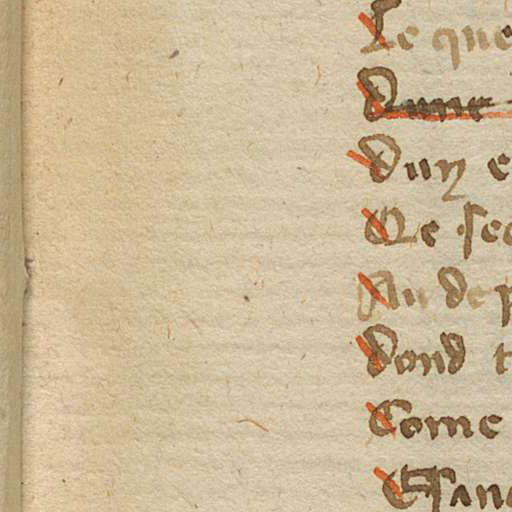 Le que
Dune
Duy e
Qe sec
An de p
Dond t
Come
Esanc